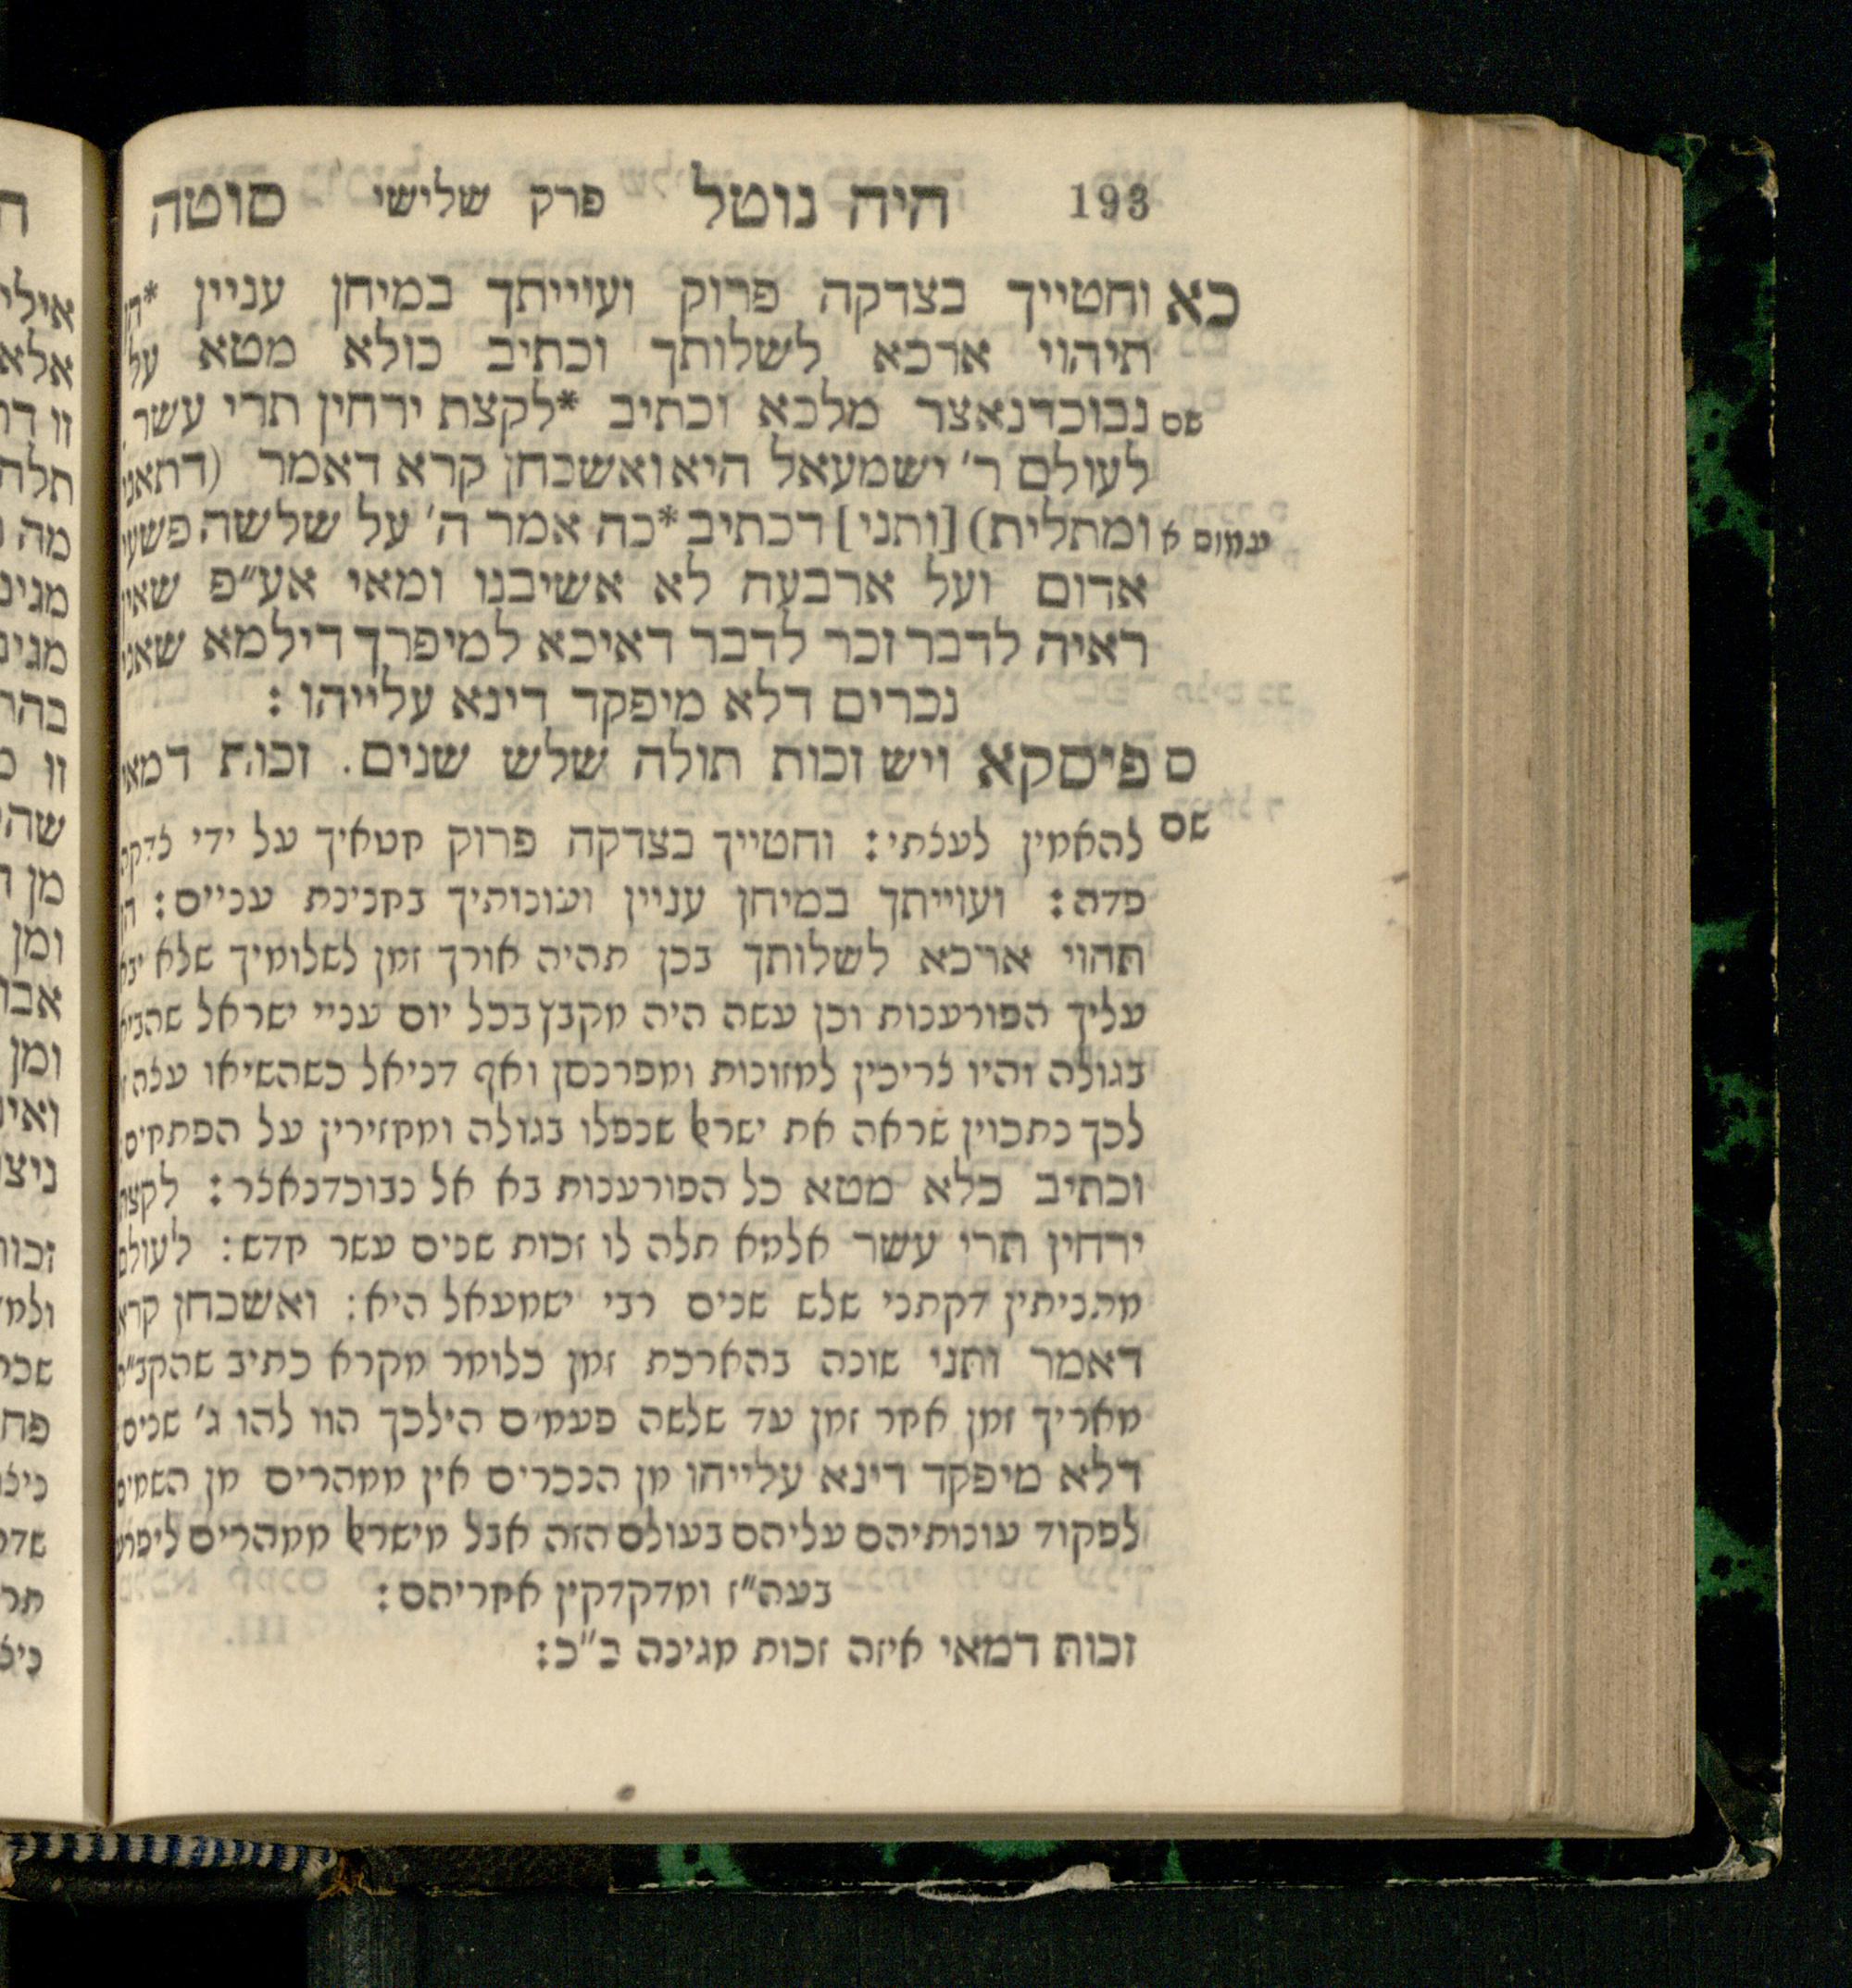 193 היה נוטל פרק שלישי סוטה
כא וחטייך בצדקה פרוק ועוייתך במיחן עניין *הן
תיהוי ארכא לשלותך וכתיב כולא מטא על
שם נבוכדנאצר מלכא וכתיב *לקצת ירחין תרי עשר
לעולם ר׳ ישמעאל היא ואשכחן קרא דאמר (דתאני
עמוס א ומתלית) [ותני] דכתיב *כה אמר ה׳ על שלשה פשעי
אדום ועל ארבעה לא אשיבנו ומאי אע״פ שאין
ראיה לדבר זכר לדבר דאיכא למיפרך דילמא שאני
נכרים דלא מיפקד דינא עלייהו :
ם פיסקא ויש זכות תולה שלש שנים. זכות דמאי
שם להאמין לעצתי: וחטייך בצדקה פרוק חטאיך על ידי צדקה
פדה: ועוייתך במיחן עניין ועונותיך בחנינת עניים: הן
תהוי אריכא לשלותך בכן תהיה אורך זמן לשלומיך שלא יבא
עליך הפורענות וכן עשה היה מקבץ בכל יום עניי ישראל שהביא
בגולה והיו צריכין למזונות ומפרנסן ואף דניאל כשהשיאו עצה זו
לכך נתכוין שראה את ישראל שנפלו בגולה ומחזירין על הפתחים:
וכתיב כלא מטא כל הפורענות בא אל נבוכדנאצר: לקצת
ירחין תרי עשר אלמא תלה לו זכות שנים עשר חדש: לעולם
מתניתין דקתני שלש שנים רבי ישמעאל היא: ואשכחן קרא
דאמר ותני שונה בהארכת זמן כלומר מקרא כתיב שהקב״ה
מאריך זמן אחר זמן עד שלשה פעמים הילכך הוו להו ג׳ שנים:
דלא מיפקד דינא עלייהו מן הנכרים אין ממהרים מן השמים
לפקוד עונותיהם עליהם בעולם הזה אבל מישראל ממהרים ליפרע
בעה״ז ומדקדקין אחריהם:
זכות דמאי איזה זכות מגינה כ״כ: